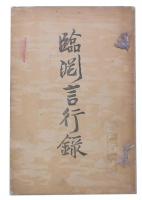 臨淵言行錄